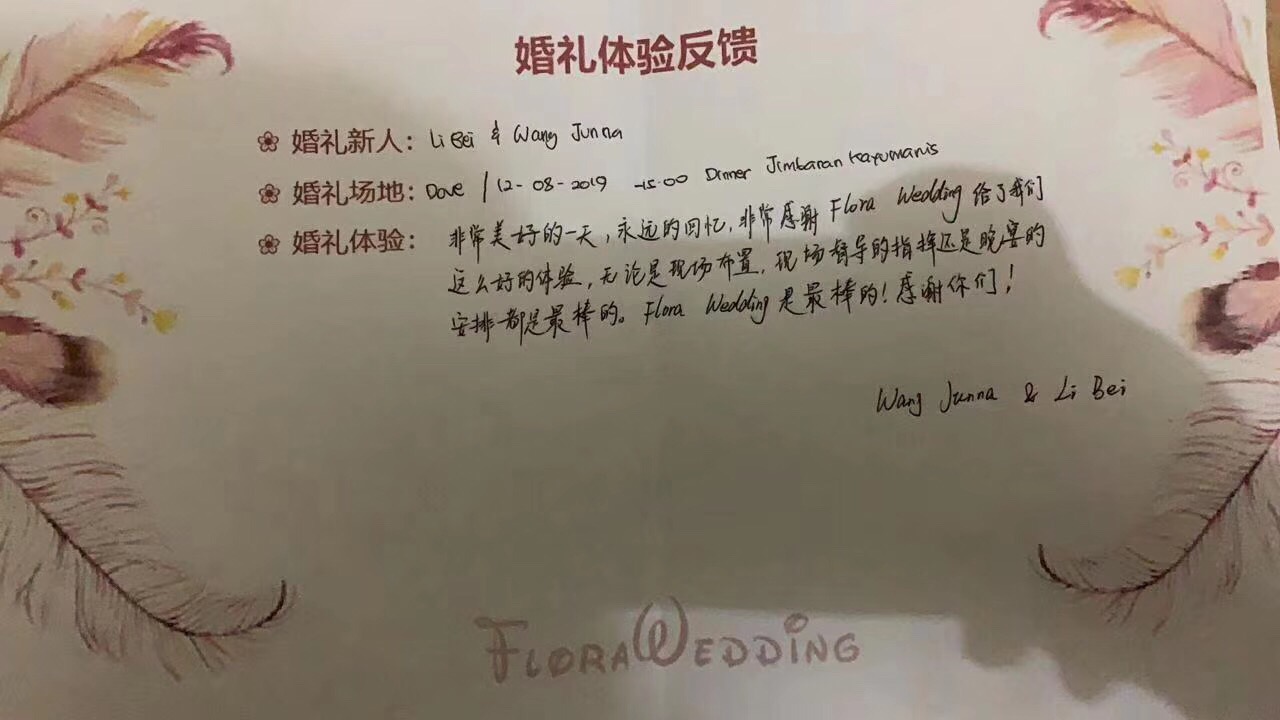 婚礼体验反馈
婚礼新人: Li Bei & Wang Junna
婚礼场地: Dove | 12-08-2019 -15.00 Dinner Jimbaran Kayumanis
婚礼体验: 非常美好的一天,永远的回忆,非常感谢 Flora Wedding 给了我们
这么好的体验,无论是现场布置,现场督导的指挥还是晚宴的
安排都是最棒的。Flora Wedding 是最棒的!感谢你们!
Wang Junna & Li Bei
FLORA WEDDING